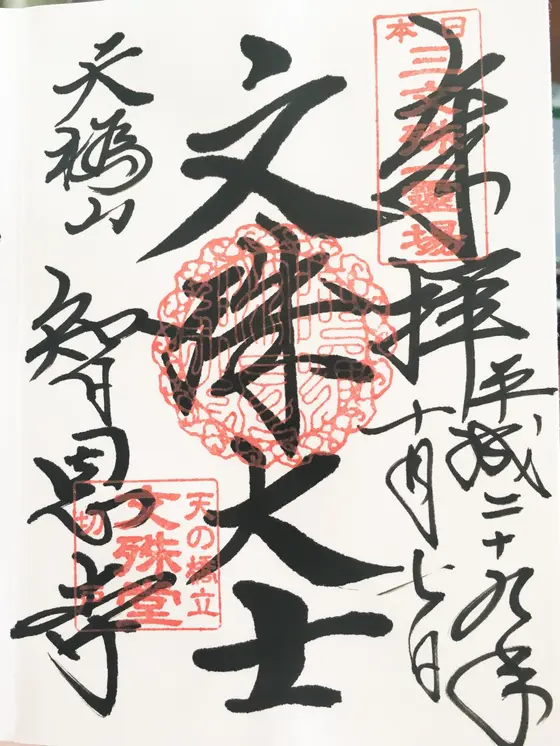 奉拝
平成二十九年
十月七日
日本三文殊一霊場
文殊大士
天橋山
智恩寺
天の橋立
文殊堂
切戸